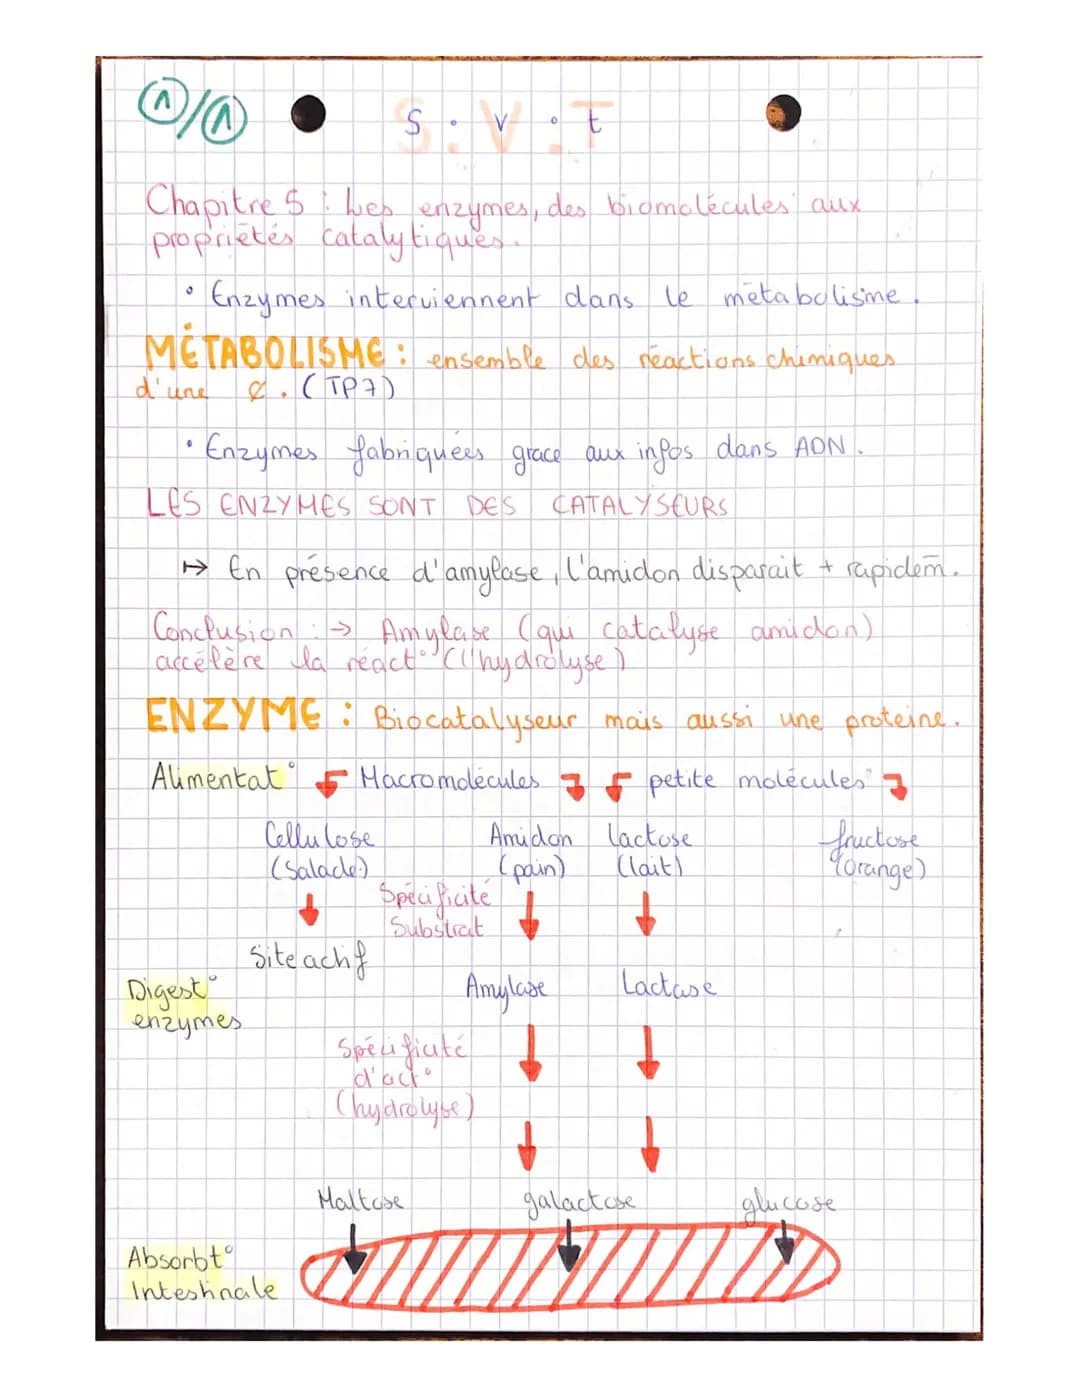 1/1
S.V.T
Chapitre 5 : Les enzymes, des biomolécules aux
propriétés catalytiques.
• Enzymes interviennent dans le métabolisme.
MÉTABOLISME : ensemble des réactions chimiques
d'une ¢. (TP7)
• Enzymes fabriquées grace aux infos dans ADN.
LES ENZYMES SONT DES CATALYSEURS
↦ En présence d'amylase, l'amidon disparait + rapidem̄.
Conclusion : → Amylase (qui catalyse amidon)
accélère la réact° (l'hydrolyse)
ENZYME : Biocatalyseur mais aussi une proteine.
Alimentat° Macromolécules petite molécules
Cellulose Amidon Lactose fructose
(Salade) (pain) (lait) (Orange)
Spécificité
Substrat
Site actif
Digest° Amylase Lactase
enzymes
Spécificité
d'act°
(hydrolyse)
Maltose galactose glucose
Absorbt°
Intestinale